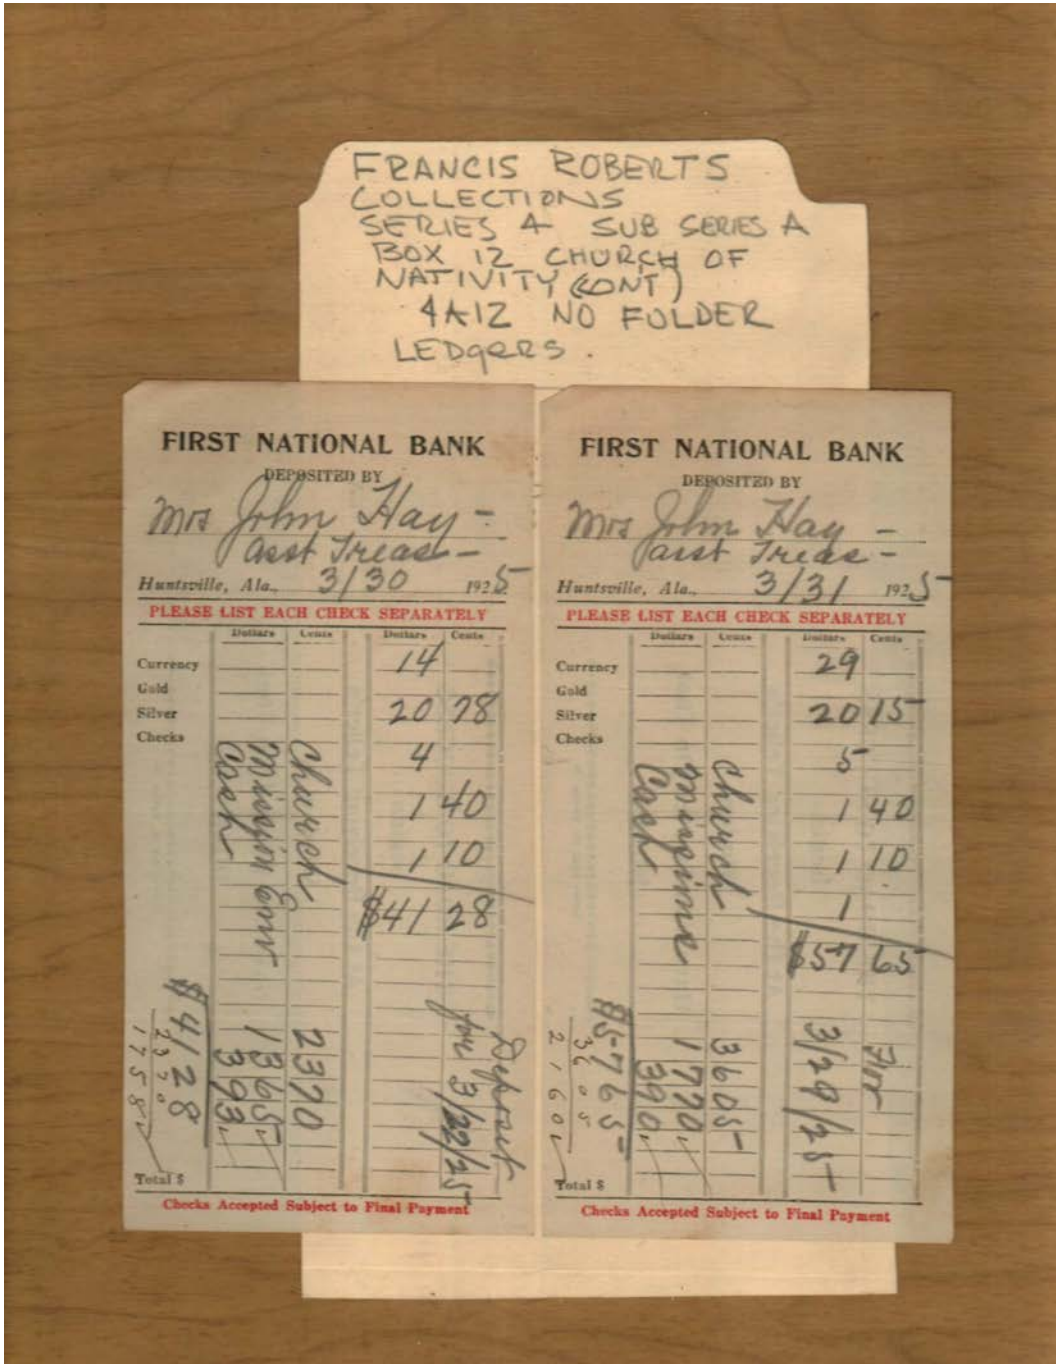 FRANCIS ROBERTS
COLLECTIONS
SERIES 4 SUB SERIES A
BOX 12 CHURCH OF
NATIVITY (CONT)
4A12 NO FOLDER
LEDgERS.
FIRST NATIONAL BANK
DEPOSITED BY
Mrs John Hay -
asst Treas -
Huntsville, Ala., 3/30 1925
PLEASE LIST EACH CHECK SEPARATELY
Dollars Cents Dollars Cents
Currency 14
Gold
Silver 20 78
Checks
4
1 40
1 10
$41 28
Church 2370
Mission Env 1365
Cash 393
$4128
2370
1758
Deposit
for 3/22/25
Total $
Checks Accepted Subject to Final Payment
FIRST NATIONAL BANK
DEPOSITED BY
Mrs John Hay -
asst Treas -
Huntsville, Ala., 3/31 1925
PLEASE LIST EACH CHECK SEPARATELY
Dollars Cents Dollars Cents
Currency 29
Gold
Silver 20 15
Checks
5
1 40
1 10
1
$57 65
Church 3605
1770
Cash 390
$5765
3605
2160
For
3/29/25
Total $
Checks Accepted Subject to Final Payment